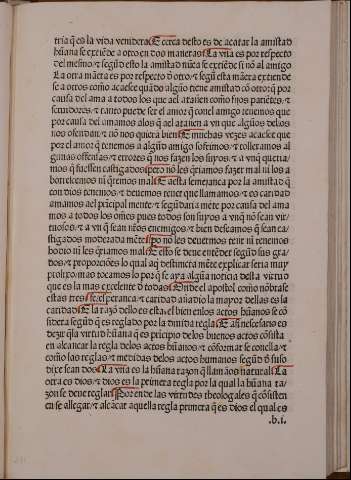 tria q̃ es la vida venidera. E cerca desto es de acatar la amistad
hũana se extiẽde a otro en dos maneras. La vna es por respecto
del mesmo. ⁊ segũ esto la amistad nũca se extiẽde si nõ al amigo
La otra mãera es por respecto d̃ otro. ⁊ segũ esta mãera extiende
se a otros como acaesçe quãdo algũo tiene amistad cõ otro: q̃ por
causa del ama a todos los que ael atañen como fijos pariẽtes. ⁊
seruidores. ⁊ tanto puede ser el amor q̃ conel amigo tenemos que
por causa del amamos alos q̃ ael atañen a vn que algũos delos
nos ofendan. ⁊ nõ nos quierã bien. E muchas vezes acaesce que
por el amor q̃ tenemos a algũo amigo sofrimos ⁊ tolleramos al
gunas offensas ⁊ errores q̃ nos fazen los suyos. ⁊ a vnq̃ querria/
mos q̃ fuessen castigados pero nõ les q̃riamos fazer mal ni los a
borrescemos ni q̃remos mal. E a esta semejança por la amistad q̃
con dios tenemos ⁊ deuemos tener que llamamos ⁊ es caridad
amamos ael prĩcipal mente ⁊ segũdaria mẽte por causa del ama
mos a todos los om̃es pues todos son suyos a vnq̃ nõ sean vir/
tuosos. ⁊ a vn q̃ sean nr̃os enemigos. ⁊ bien deseamos q̃ sean ca/
stigados moderada mẽte. po nõ les deuemos tener ni tenemos
hodio ni les q̃riamos mal. Esto se deue entẽder segũd sus gra/
dos ⁊ proporciões lo qual aq̃ destincta mẽte explicar seria muy
prolixo. mas tocamos lo por q̃ se aya algũa noticia desta virtud
que es la mas excelente d̃ todas. Onde el apostol como nõbrase
estas tres fe. esperança. ⁊ caridad añadio la mayor dellas es la
caridad. E la razõ dello es esta. el bien enlos actos hũanos se cõ
sidera segũd q̃ es reglado por la diuida regla. E asi necesario es
dezir q̃ la virtud hũana q̃ es prĩcipio delos buenos actos cõsista
en alcançar la regla delos actos hũanos. ⁊ cõformar se conella. ⁊
como las reglas ⁊ medidas delos actos humanos segũd d̃ suso
dixe sean dos. La vna es la hũana razon q̃ llamãos natural. La
otra es dios. ⁊ dios es la primera regla por la qual la hũana ra/
zon se deue reglar. Por ende las virtudes theologales q̃ cõsisten
en se allegar. ⁊ alcãçar aquella regla primera q̃ es dios el qual es
.b.i.